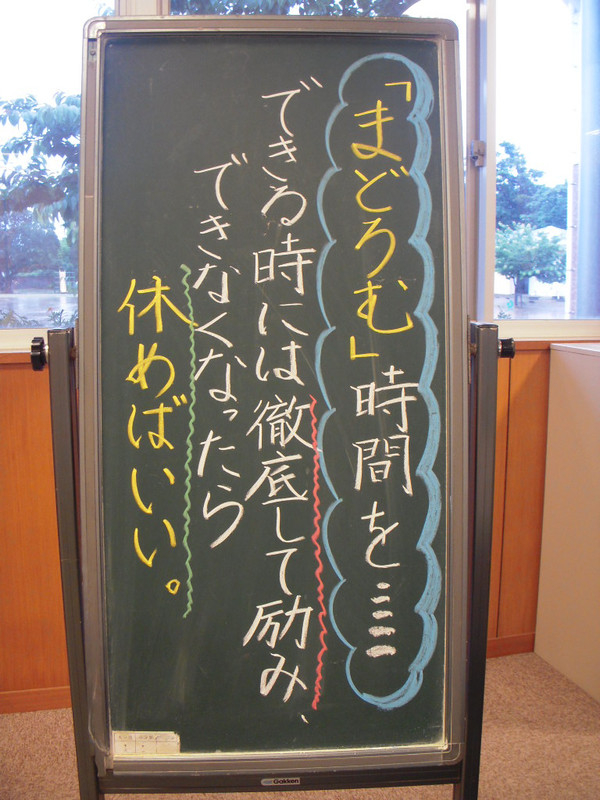 「まどろむ」時間を……
できる時には徹底して励み、
できなくなったら
休めばいい。
Gakken